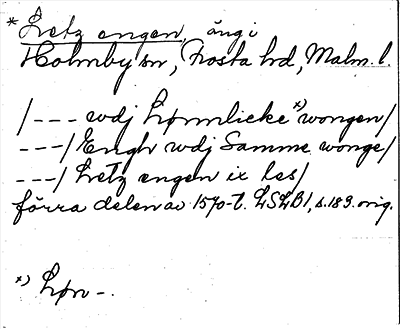 * Letz engen, äng i
Holmby sn, Frosta hd, Malm. l.
/--- wdj Lørnlicke *) wongen/
---/ Engh wdj Samme wonge/
---/ Letz engen ix les/
förra delen av 1570-t. LSLB1, s. 189. orig.
*) Løn-.